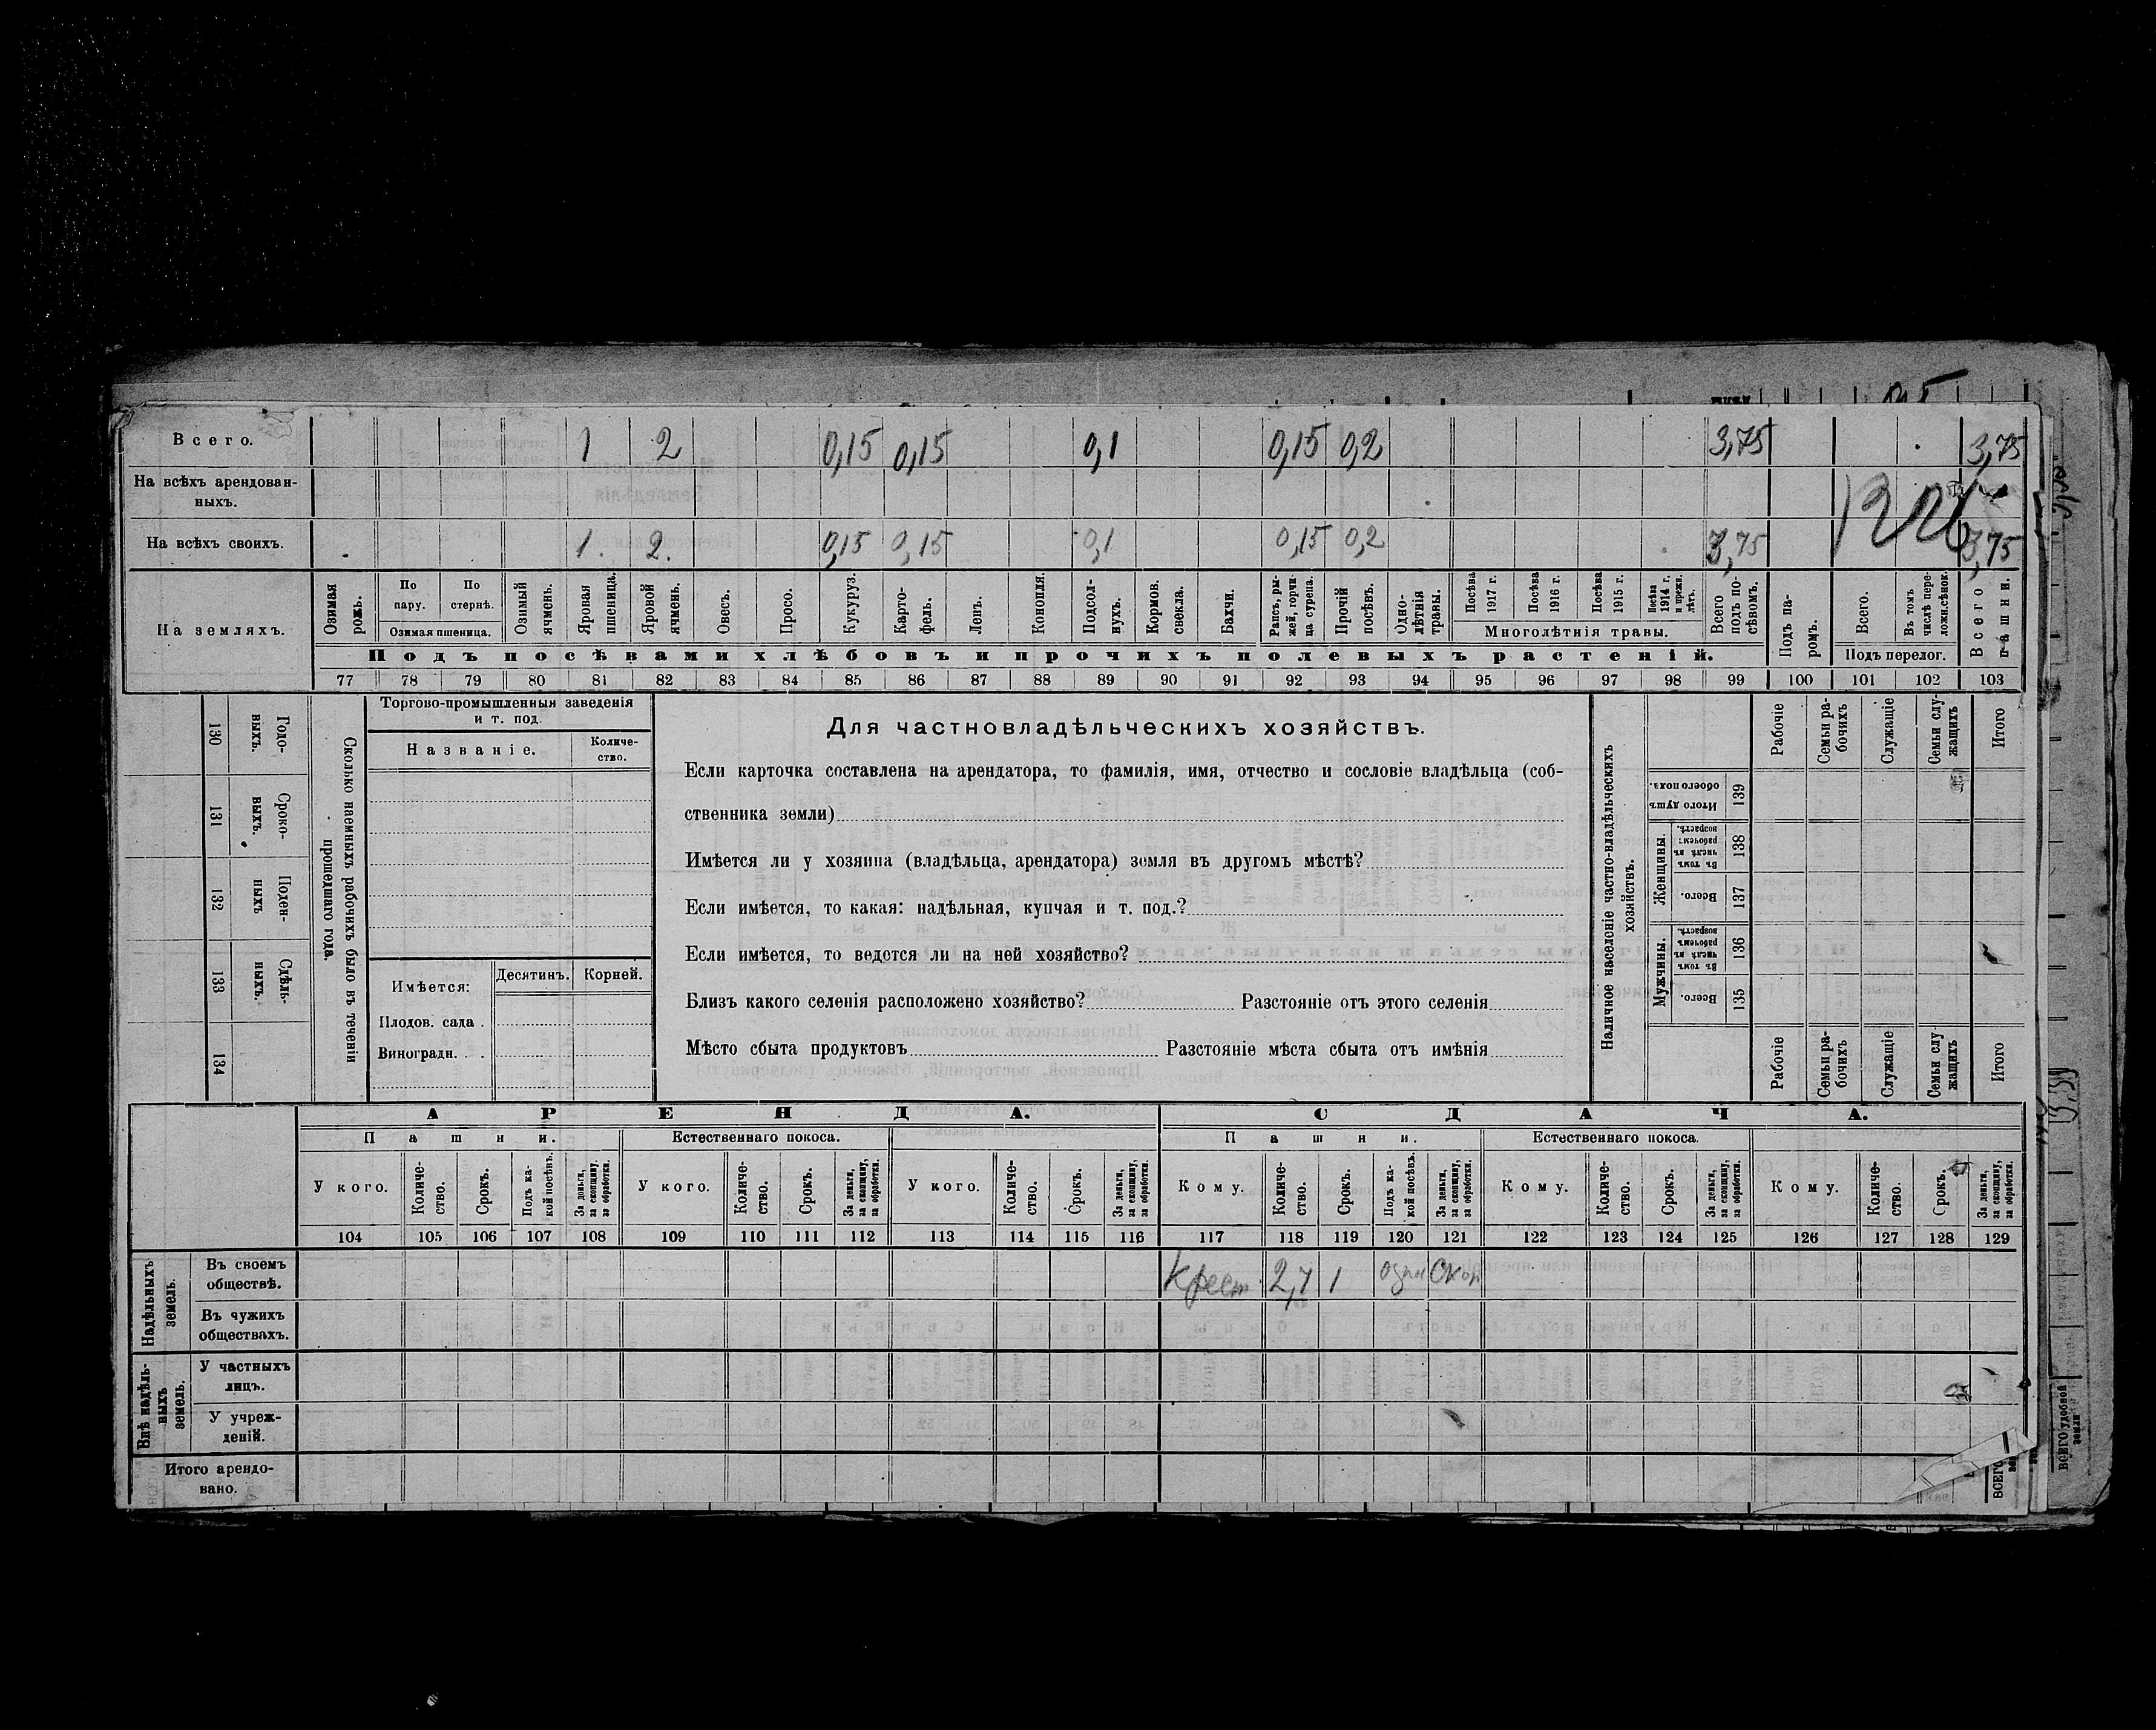 Всего. 1 2 0,15 0,15 0,1 0,15 0,2 3,75 3,75
На всѣхъ арендован-
ныхъ.
На всѣхъ своихъ. 1. 2. 0,15 0,15 0,1 0,15 0,2 3,75 3,75
На земляхъ.
Озимая рожь.
По пару.
По стернѣ.
Озимая пшеница.
Озимый ячмень.
Яровая пшеница.
Яровой ячмень.
Овесъ.
Просо.
Кукуруз.
Карто-
фель.
Ленъ.
Конопля.
Подсол-
нухъ.
Кормов. свекла.
Бахчи.
Рапсъ, ры-
жей, горчи-
ца сурепа.
Прочій посѣвъ.
Одно-
лѣтнія травы.
Посѣва 1917 г.
Посѣва 1916 г.
Посѣва 1915 г.
Посѣва 1914 г. и прежн. лѣтъ.
Многолѣтнія травы.
Всего подъ по-
сѣвомъ.
Подъ па-
ромъ.
Всего.
Въ томъ числѣ пере-
ложн.сѣнок.
Подъ перелог.
Всего пашни.
Подъ посѣвами хлѣбовъ и прочихъ полевыхъ растеній.
77 78 79 80 81 82 83 84 85 86 87 88 89 90 91 92 93 94 95 96 97 98 99 100 101 102 103
130 Годо-
выхъ.
131 Сроко-
выхъ.
132 Поден-
ныхъ
133 Сдѣль-
ныхъ.
134
Сколько наемныхъ рабочихъ было въ теченіи
прошедшаго года.
Торгово-промышленныя заведенія
и т. под.
Названіе.
Количе-
ство.
Имѣется: Десятинъ. Корней.
Плодов. сада .
Виноградн. . .
Для частновладѣльческихъ хозяйствъ.
Если карточка составлена на арендатора, то фамилія, имя, отчество и сословіе владѣльца (соб-
ственника земли)
Имѣется ли у хозяина (владѣльца, арендатора) земля въ другомъ мѣстѣ?
Если имѣется, то какая: надѣльная, купчая и т. под.?
Если имѣется, то ведется ли на ней хозяйство?
Близъ какого селенія расположено хозяйство? Разстояніе отъ этого селенія
Мѣсто сбыта продуктовъ Разстояніе мѣста сбыта отъ имѣнія
Наличное населеніе частно-владѣльческихъ
хозяйствъ.
Рабочіе
Семьи ра-
бочихъ
Служащіе
Семьи слу-
жащихъ
Итого
Итого душъ обоего пола. 139
Женщины.
Въ томъ числѣ въ рабочемъ возрастѣ. 138
Всего. 137
Мужчины.
Въ томъ числѣ въ рабочемъ возрастѣ. 136
Всего. 135
Рабочіе
Семьи ра-
бочихъ
Служащіе
Семьи слу
жащихъ
Итого
АРЕНДА. СДАЧА.
Пашни. Естественнаго покоса. Пашни. Естественнаго покоса.
У кого.
Количе-
ство.
Срокъ.
Подъ ка-
кой посѣвъ.
За деньги, за скопщину. за обработки.
У кого.
Количе-
ство.
Срокъ.
За деньги, за скопщину, за обработки.
У кого.
Количе-
ство.
Срокъ.
За деньги, за скопщину, за обработки.
Кому.
Количе-
ство.
Срокъ.
Подъ ка-
кой посѣвъ.
За деньги, за скопщину, за обработки.
Кому.
Количе-
ство.
Срокъ.
За деньги, за скопщину, за обработки.
Кому.
Количе-
ство.
Срокъ.
За деньги, за скопщину, за обработки.
104 105 106 107 108 109 110 111 112 113 114 115 116 117 118 119 120 121 122 123 124 125 126 127 128 129
Надѣльныхъ земель.
Въ своемъ
обществѣ. Крест 2,7 1 Скоп
Въ чужихъ
обществахъ.
Внѣ надѣль-
ныхъ земель.
У частныхъ
лицъ.
У учреж-
деній.
Итого арендо-
вано.
всего удобной земли